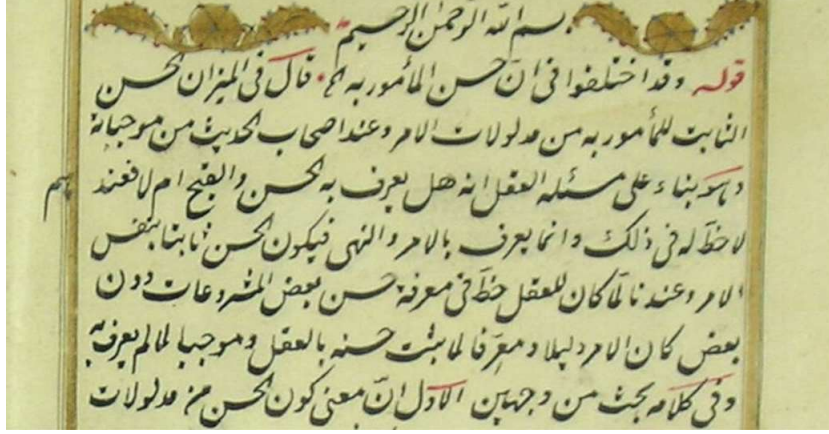 بسم الله الرحمن الرحيم
قوله وقد اختلفوا فى ان حسن المأمور به الخ قال فى الميزان الحسن
الثابت للمأمور به من مدلولات الامر وعند اصحاب الحديث من موجباته
وهو بناء على مسئلة العقل انه هل يعرف به الحسن والقبح ام لا فعند
هم
لا حظّ له فى ذلك وانما يعرف بالامر والنهى فيكون الحسن ثابتا بنفس
الامر وعندنا لمّا كان للعقل حظّ فى معرفة حسن بعض المشروعات دون
بعض كان الامر دليلا ومعرّفا لما يثبت حسنه بالعقل وموجبا لما لم يعرف به
وفى كلامه بحث من وجهين الاول انّ معنى كون الحسن من مدلولات